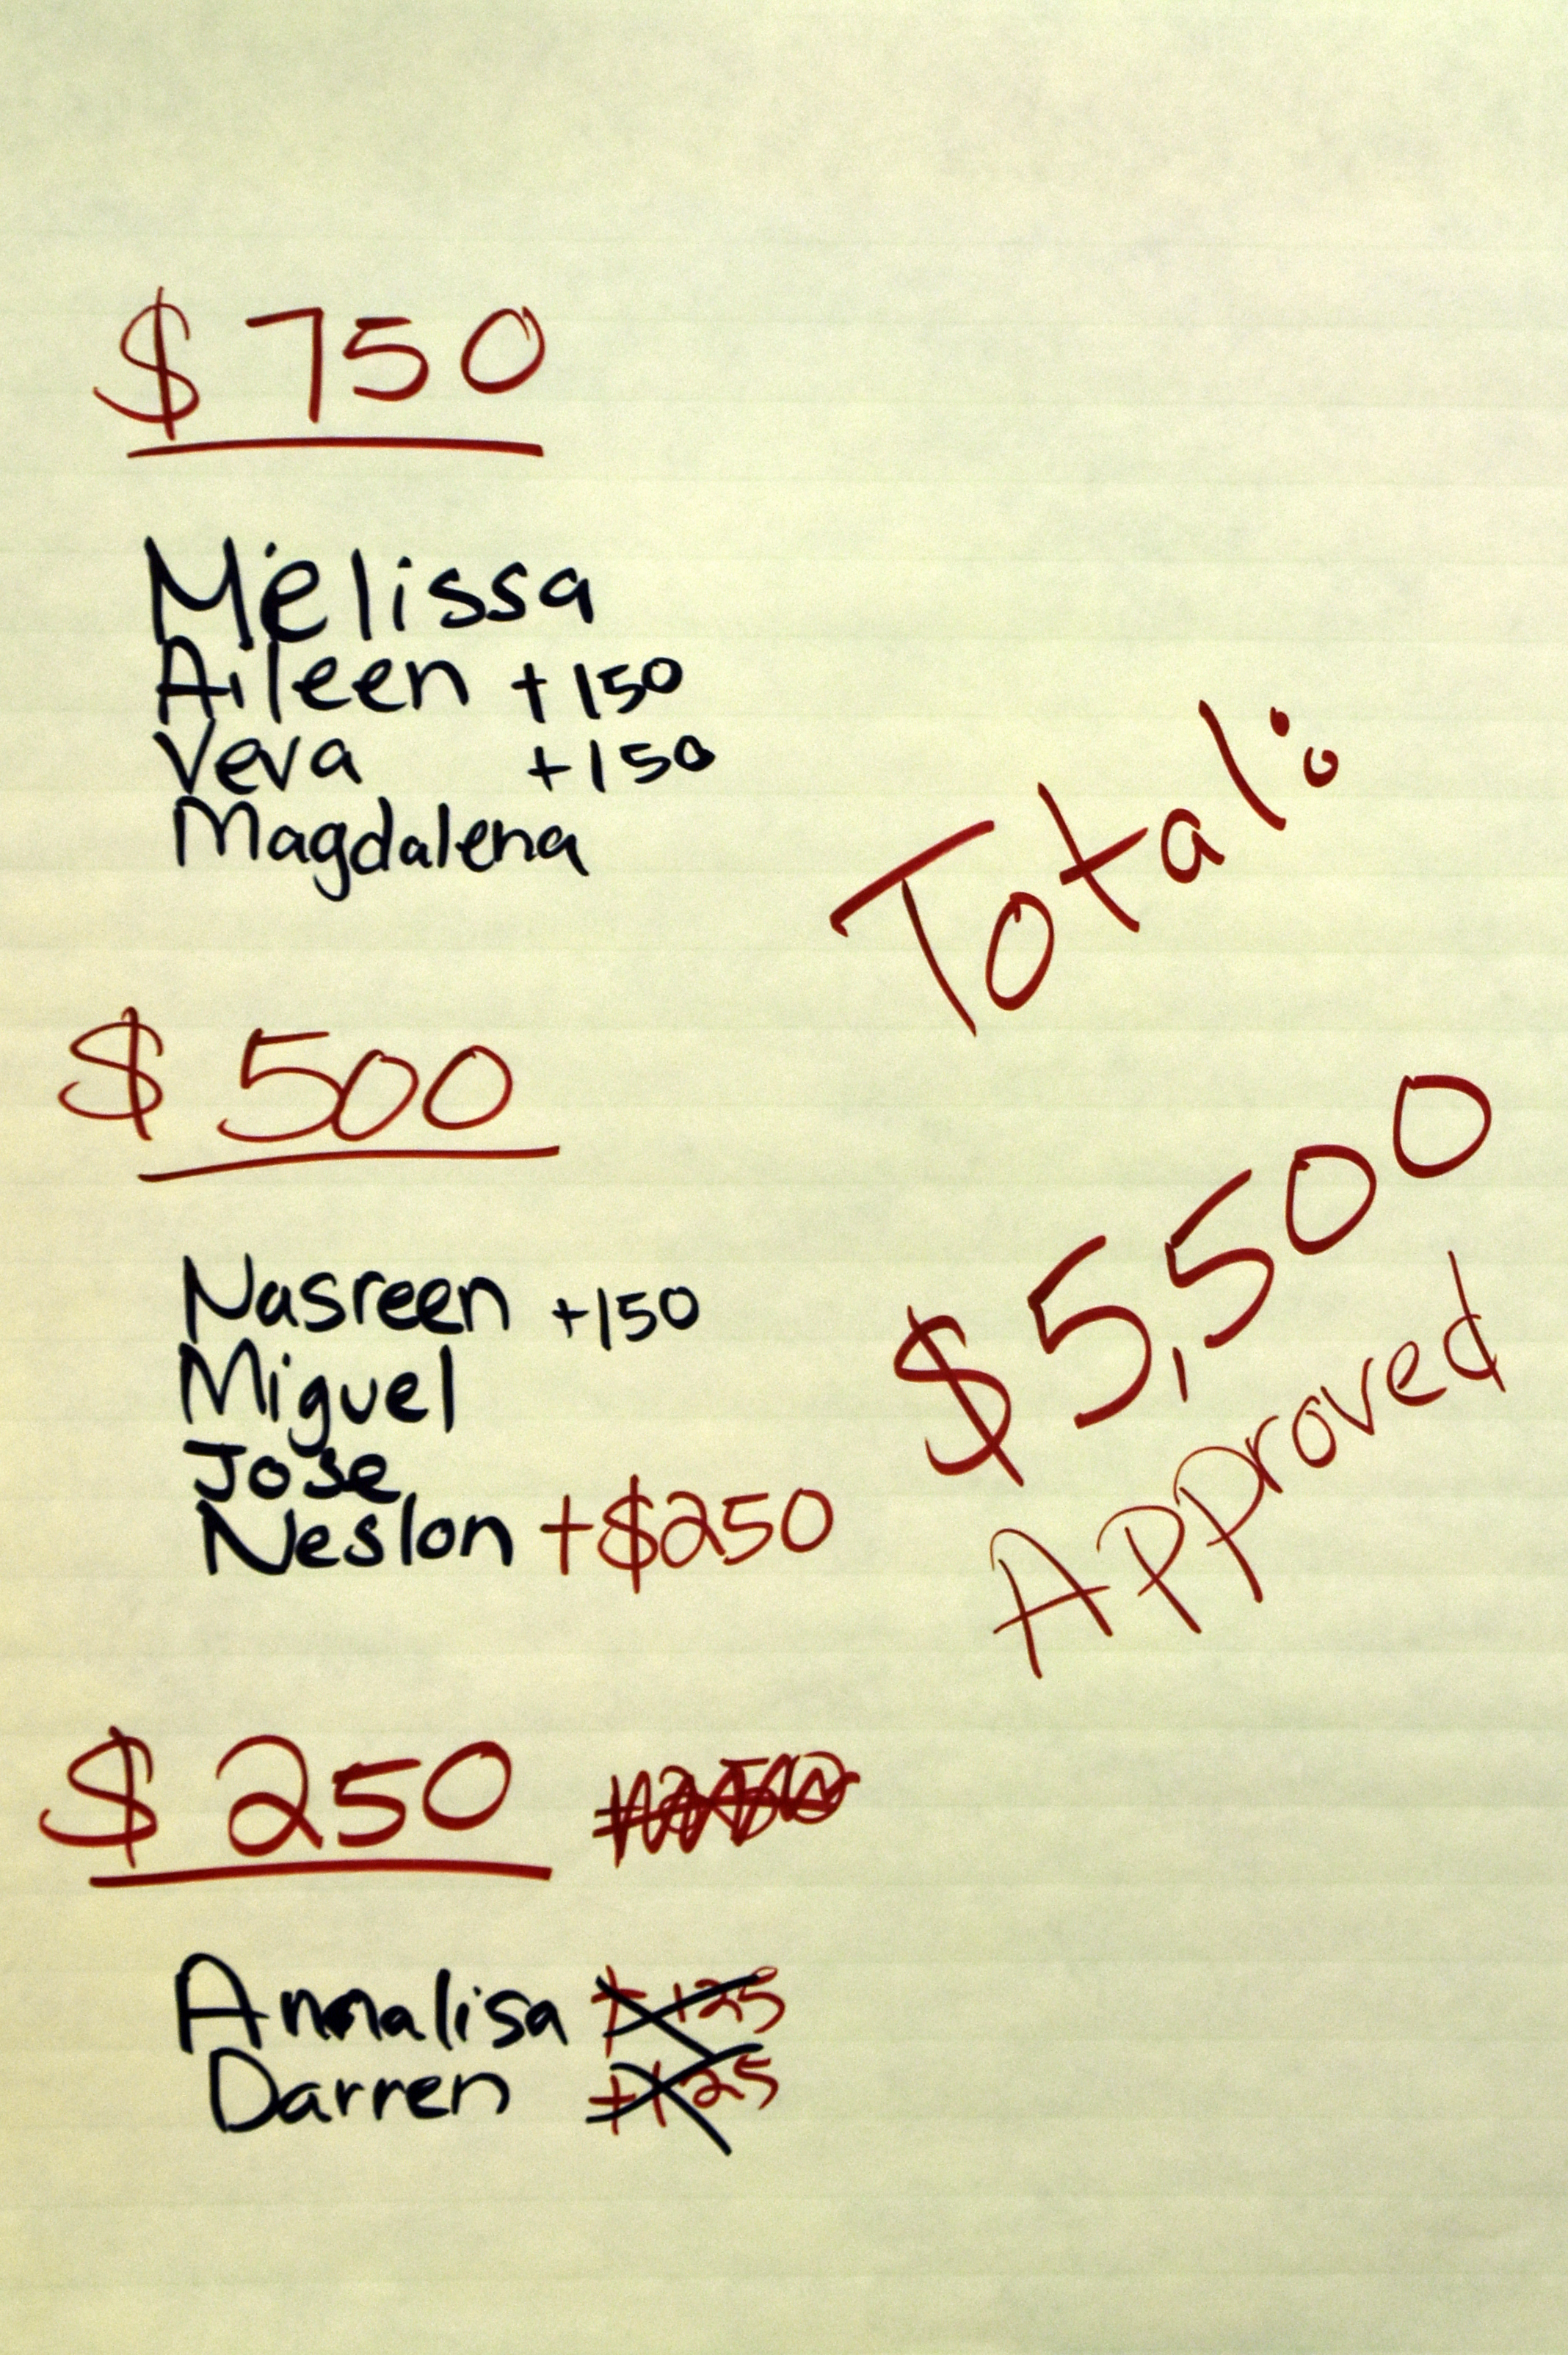 $750
Melissa
Aileen +150
Veva +150
Magdalena
Total:
$500
$5,500
Approved
Nasreen +150
Miguel
Jose
Neslon +$250
$250
Annalisa +125
Darren +125